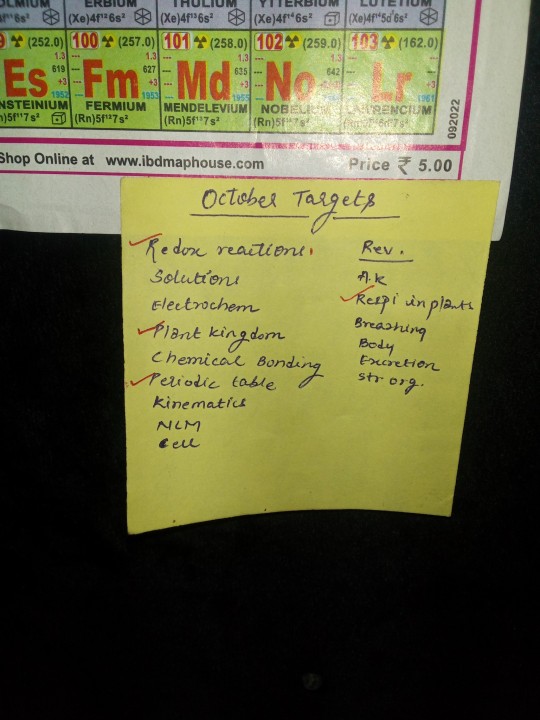 OLMIUM ERBIUM THULIUM YTTERBIUM LUTETIUM
f¹¹6s² (Xe)4f¹²6s² (Xe)4f¹³6s² (Xe)4f¹⁴6s² (Xe)4f¹⁴5d¹6s²
9 (252.0) 100 (257.0) 101 (258.0) 102 (259.0) 103 (162.0)
1.3 1.3 1.3 1.3
619 627 635 642
Es Fm Md No Lr
+3 +3 +3 +3
1952 1953 1955 1961
NSTEINIUM FERMIUM MENDELEVIUM NOBELIUM LAWRENCIUM
n)5f¹¹7s² (Rn)5f¹²7s² (Rn)5f¹³7s² (Rn)5f¹⁴7s²
092022
Shop Online at www.ibdmaphouse.com Price ₹ 5.00
October Targets
Redox reactions.
Solutions
Electrochem
Plant kingdom
Chemical Bonding
Periodic table
Kinematics
NLM
Cell
Rev.
A.K
Respi in plants
Breathing
Body
Excretion
str org.